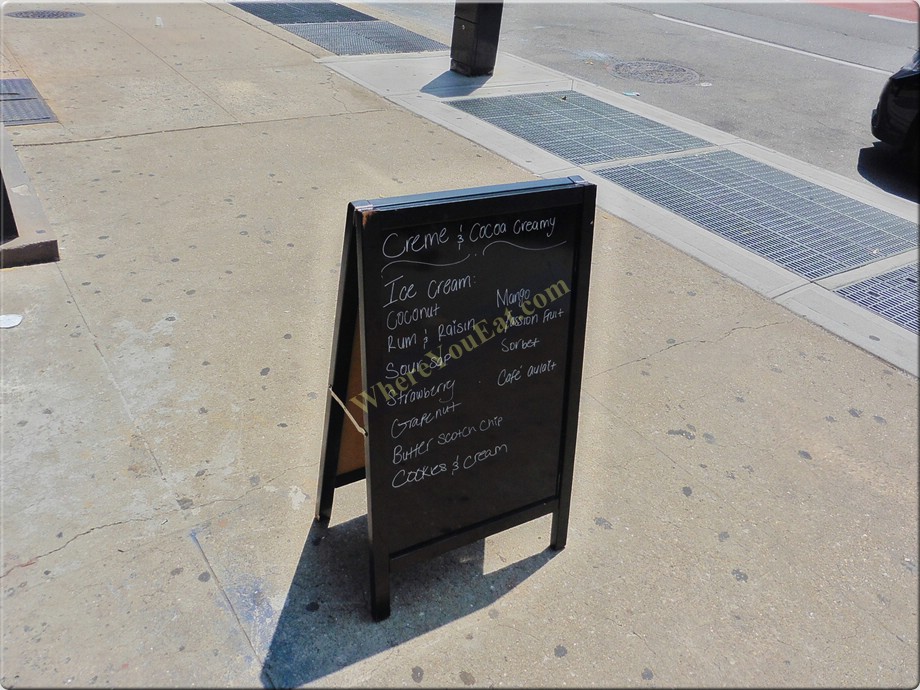 Creme & Cocoa Creamy
Ice Cream:
Coconut
Rum & Raisin
Soursop
Strawberry
Grapenut
Butter scotch chip
Cookies & Cream
Mango
Passion Fruit
Sorbet
Café aulait
WhereYouEat.com